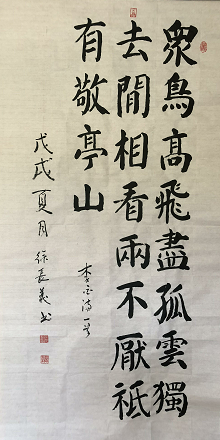 衆鳥高飛盡孤雲獨
去閒相看兩不厭祗
有敬亭山
李白诗一首
戊戌夏月徐书